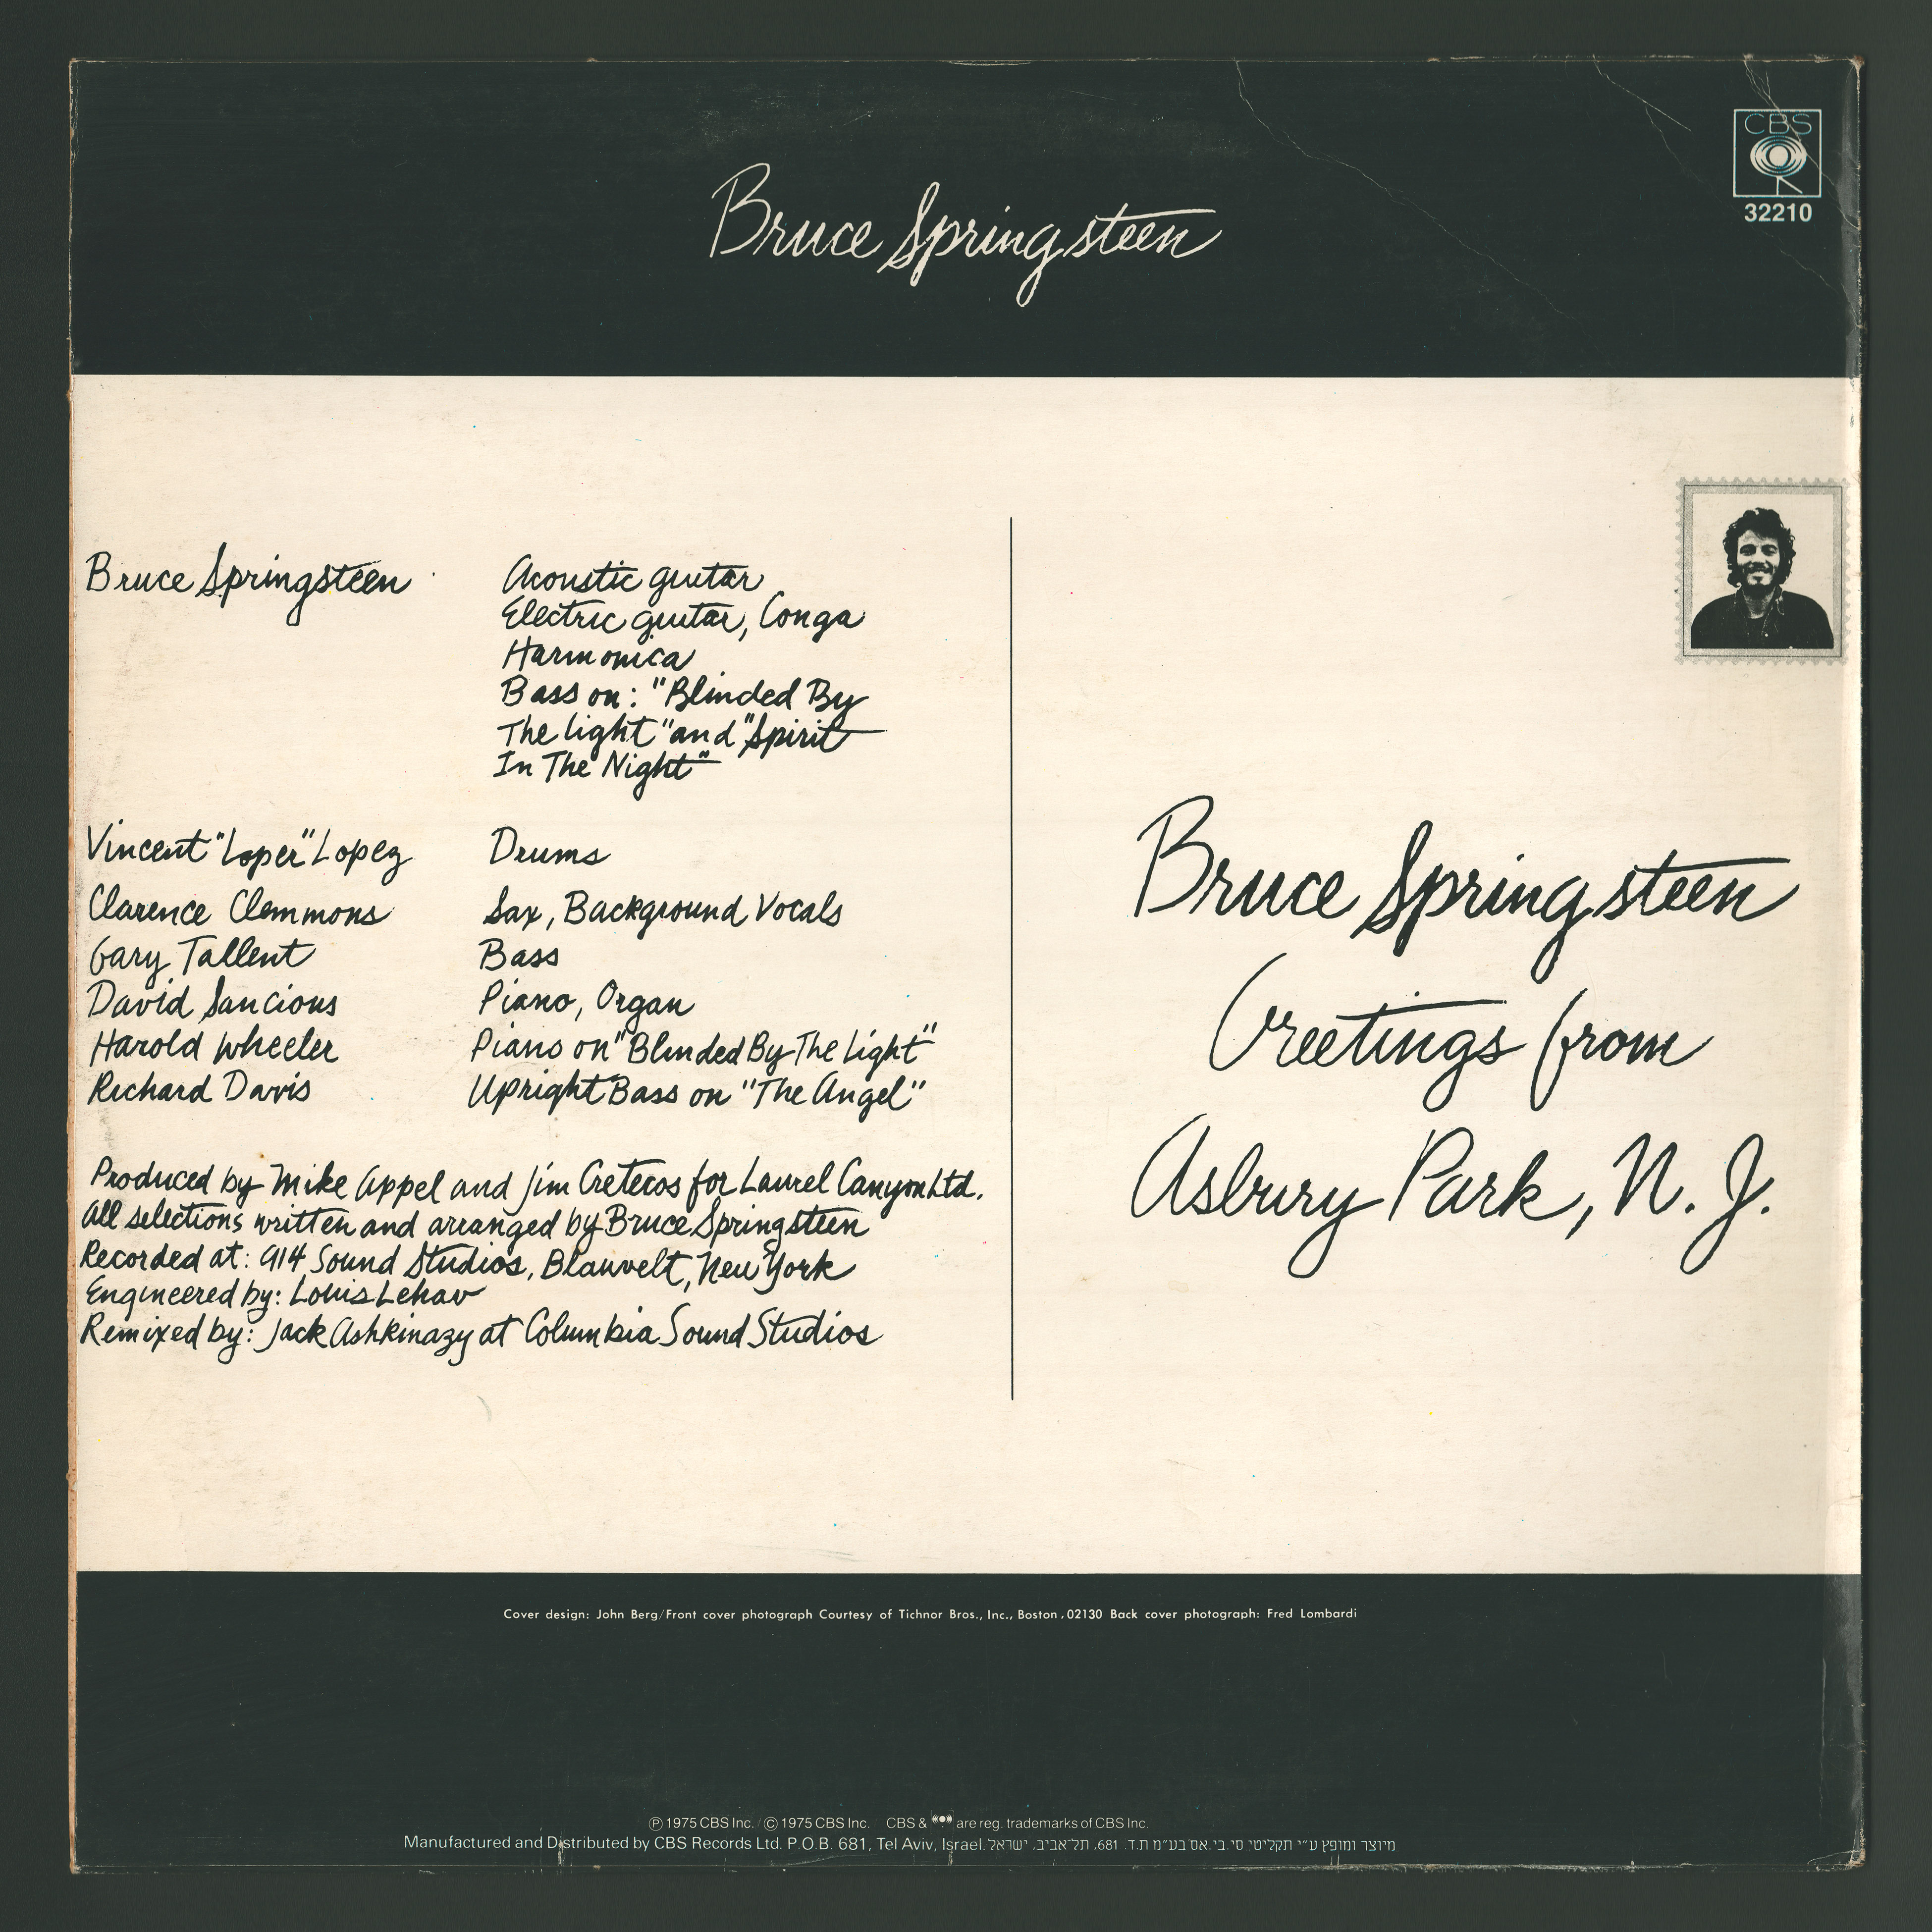 CBS
32210
Bruce Springsteen
Bruce Springsteen Acoustic guitar
Electric guitar, Conga
Harmonica
Bass on: "Blinded By
The Light" and "Spirit
In The Night"
Vincent "Loper" Lopez Drums
Clarence Clemmons Sax, Background Vocals
Gary Tallent Bass
David Sancious Piano, Organ
Harold Wheeler Piano on "Blinded By The Light"
Richard Davis Upright Bass on "The Angel"
Produced by Mike Appel and Jim Cretecos for Laurel Canyon Ltd.
All selections written and arranged by Bruce Springsteen
Recorded at: 914 Sound Studios, Blauvelt, New York
Engineered by: Louis Lehav
Remixed by: Jack Ashkinazy at Columbia Sound Studios
Bruce Springsteen
Greetings from
Asbury Park, N. J.
Cover design: John Berg/Front cover photograph Courtesy of Tichnor Bros., Inc., Boston, 02130 Back cover photograph: Fred Lombardi
Ⓟ 1975 CBS Inc. / © 1975 CBS Inc. CBS & are reg. trademarks of CBS Inc.
Manufactured and Distributed by CBS Records Ltd. P.O.B. 681, Tel Aviv, Israel. מיוצר ומופץ ע״י תקליטי סי.בי.אס בע״מ ת.ד. 681, תל־אביב, ישראל